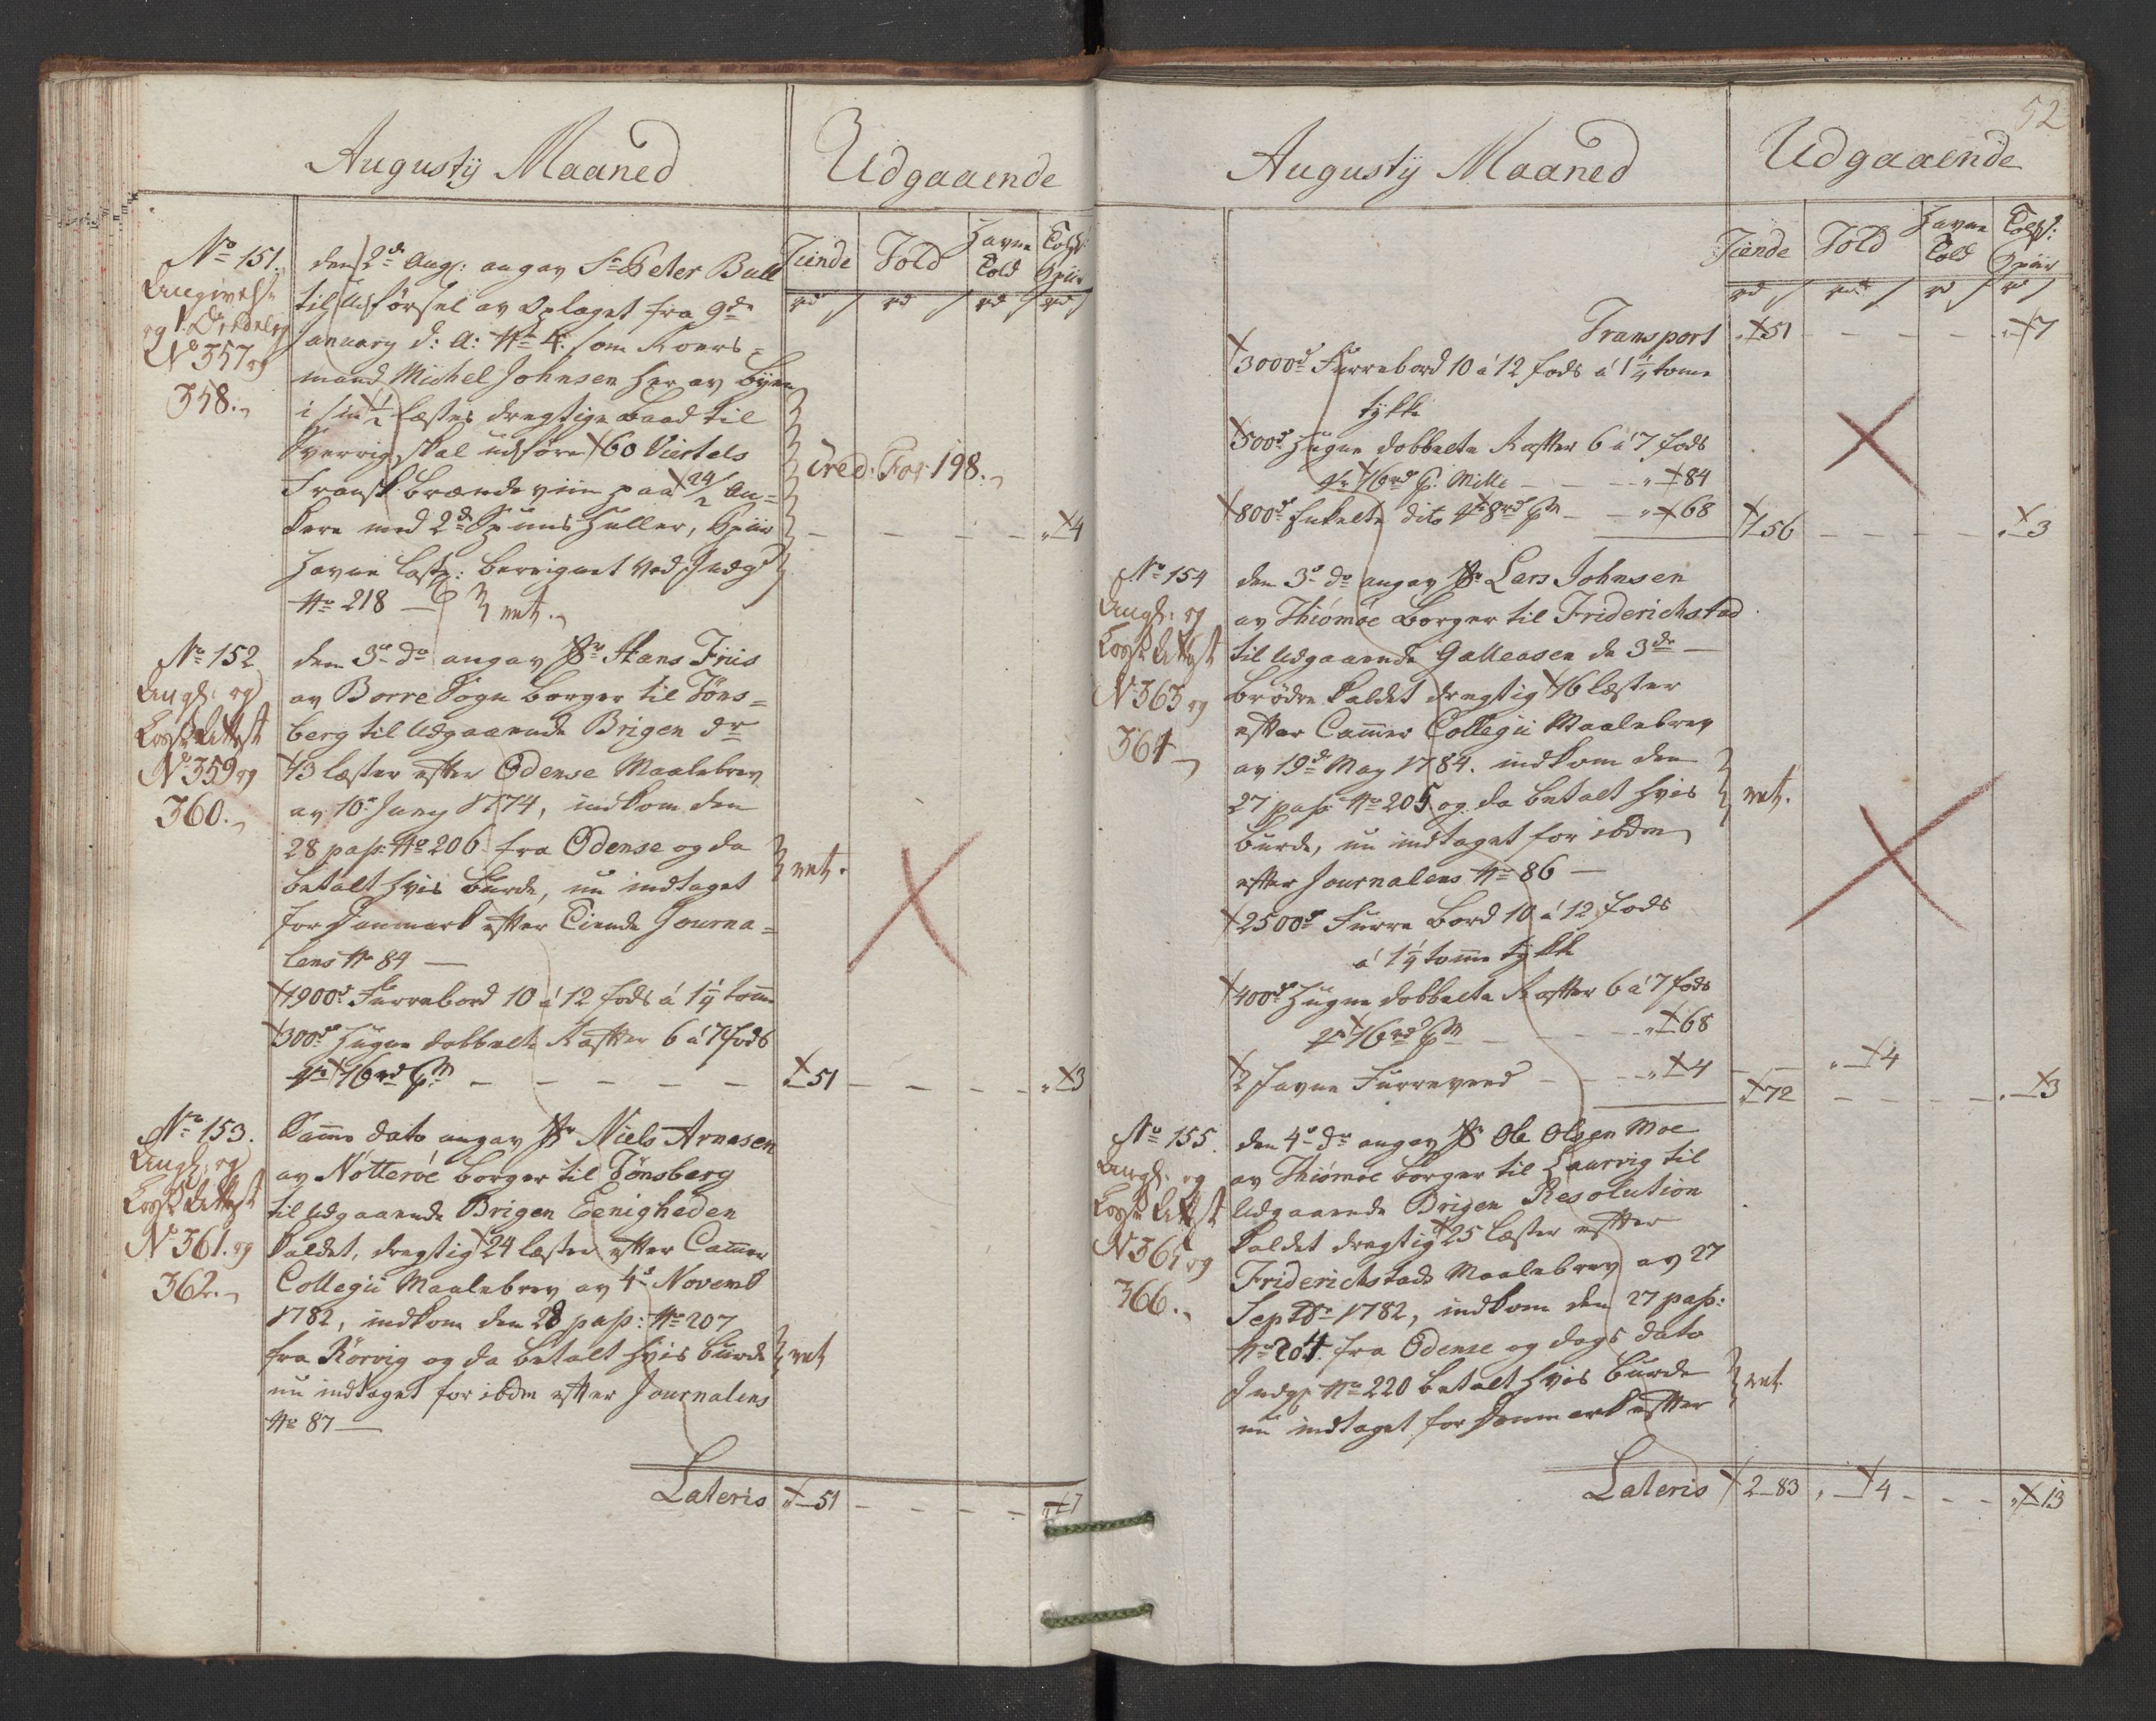 Augustij Maaned
Udgaaende
Tiende Told Havne Told Tolds: Spiir
rd rd rd rd
No 151.
Angivelse
og 1. Do
No 357 og
358.
den 2de Aug: angav Sr Peter Bull
til Udførsel av Oplaget fra 9de
January d: A: No 4. som Koers-
mand Michel Johnsen her av byen
i sin 1/2 læsters drægtige baad til
Sverrig skal udføre 60 Viertels
Fransk brændeviin paa 24/2 An-
kere med 2de Spuns huller,
Havne beregnet ved Indg:
No 218 — ret.
Cred: For 198.
4
No 152
Angs: og
No 359 og
360.
den 3e do angav Sr Hans Friis
av Borre Sogn borger til Töns-
berg til Udgaaende Brigen
13 læster efter Odense Maalebrev
av 10e Juny 1774, indkom den
28 pass: No 206 fra Odense og da
betalt hvis burde, nu indtaget
for Danmark efter Tiende Journa-
lens No 84 —
1900de Furrebord 10 á 12 fods á 1 1/4 tomme
300de Hugne dobbelte Raffter 6 á 7 fods
16 rd — — — — — 51 — — — 3
ret.
No 153.
Angs: og
No 361. og
362.
Samme dato angav Sr Niels Arnesen
av Nötteröe borger til Tönsberg
til Udgaaende Brigen Eenigheden
kaldet, drægtig 24 læster efter Cammer
Collegii Maalebrev av 4e Novemb
1782, indkom den 28 pass: No 207
fra Rörvig og da betalt hvis burde
nu indtaget for ibdm efter Journalens
No 87 —
ret
Lateris 51 — — — 7
52
Augustij Maaned
Udgaaende
Tiende Told Havne Told Tolds: Spiir
rd rd rd rd
Transport 51 — — — — 7
3000de Furrebord 10 á 12 fods á 1 1/4 tomme
tykke
500de Hugne dobbelte Raffter 6 á 7 fods
16 rd p. Mille — — — 84
800de Enkelte dito 8 rd — — 68
1 56 — — — — 3
No 154
Angs: og
No 363 og
364
den 3e do angav Sr Lars Johnsen
av Thiömöe borger til Friderichstad
til Udgaaende Galleasen de 3de —
brödre kaldet drægtig 16 læster
efter Cammer Collegii Maalebrev
av 19de May 1784. indkom den
27 pass: No 205 og da betalt hvis
burde, nu indtaget for ibdm
efter Journalens No 86 —
ret.
2500de Furre bord 10 á 12 fods
á 1 1/4 tomme tykke
400de Hugne dobbelte Raffter 6 á 7 fods
16 rd — — — 68
2 favne Furreveed — — — 4 — — 4
72 — — — — 3
No 155.
Angs: og
No 365 og
366.
den 4e do angav Sr Ole Olsen Moe
av Thiömöe borger til Laurvig til
Udgaaende Brigen Resolution
kaldet drægtig 25 læster efter
Friderichstads Maalebrev av 27
Septbr 1782, indkom den 27 pass:
No 204. fra Odense og dags dato
Indg: No 220 betalt hvis burde
nu indtaget for Danmark efter
ret
Lateris 2 — 83 — 4 — — — 13